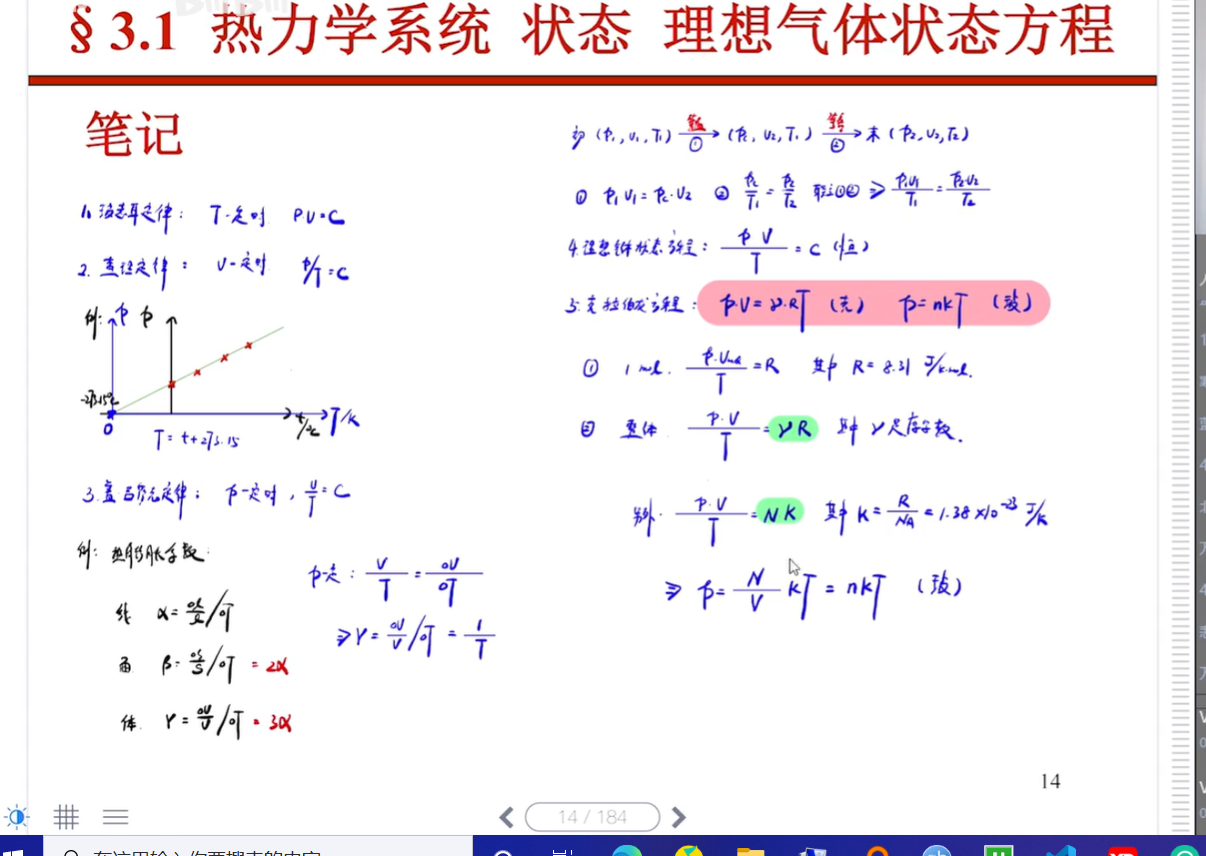 §3.1 热力学系统 状态 理想气体状态方程
笔记
1. 定律： T一定时 PV=C
2. 查理定律： V一定时 P/T=C
例: p p
-273.15℃
0
t/℃ T/K
T= t+273.15
3. 盖吕萨克定律： p一定时， V/T=C
例: 热膨胀系数:
线 α= ΔL/L /ΔT
面 β= ΔS/S /ΔT =2α
体. γ= ΔV/V /ΔT =3α
p一定: V/T = ΔV/ΔT
⇒ γ= ΔV/V /ΔT = 1/T
初 (p₁,V₁,T₁) ① → (p₂,V₂,T₁) ② → 末 (p₂,V₂,T₂)
① p₁V₁=p₂·V₂ ② 联立①② ⇒ p₁V₁/T₁ = p₂V₂/T₂
4.理想气体状态方程: pV/T = C (恒)
5.克拉伯龙方程: p·V=γ·RT (克) p=nkT (玻)
① 1 mol. p·Vmol/T =R 其中 R=8.31 J/k·mol.
② 整体 p·V/T = γR 其中 γ是摩尔数.
另外. p·V/T = NK 其中 K= R/NA =1.38×10⁻²³ J/K
⇒ p= N/V kT = nkT (玻)
14
14 / 184
在这里输入你要搜索的内容